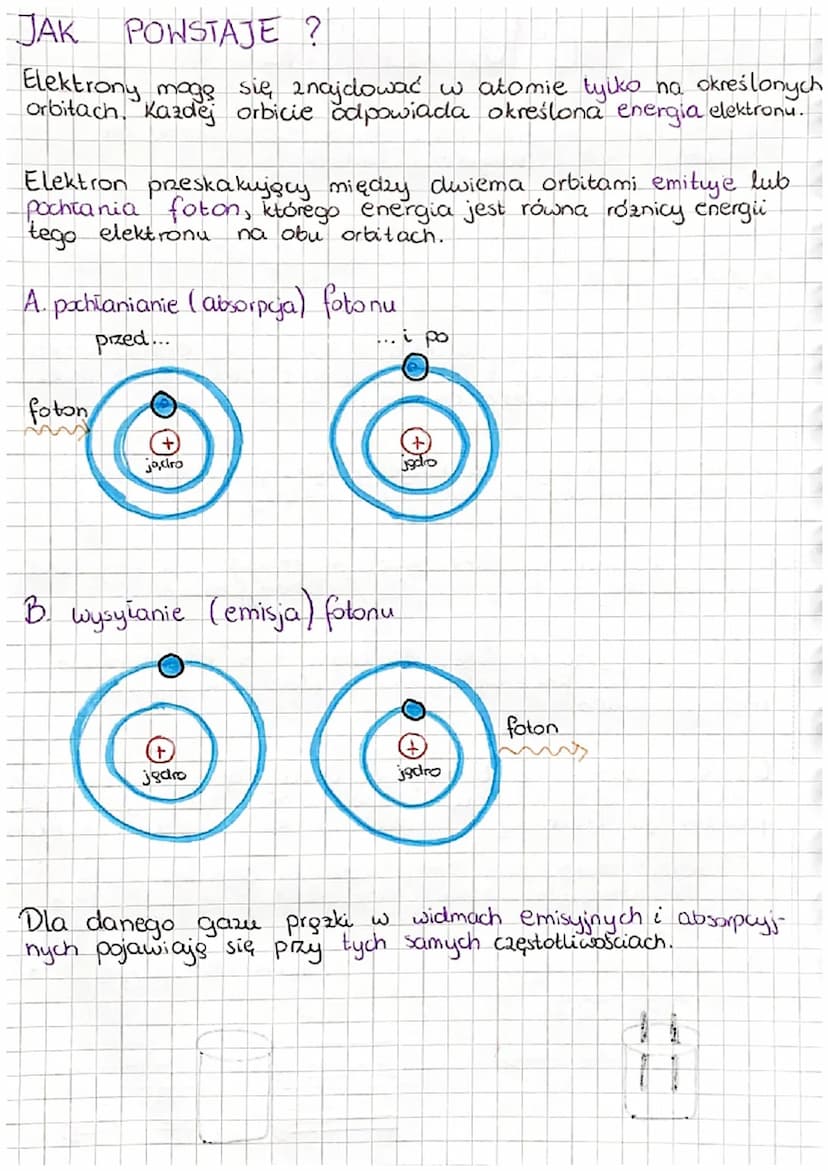 JAK POWSTAJE ?
Elektrony mogą się znajdować w atomie tylko na określonych
orbitach. Każdej orbicie odpowiada określona energia elektronu.
Elektron przeskakujący między dwiema orbitami emituje lub
pochłania foton, którego energia jest równa różnicy energii
tego elektronu na obu orbitach.
A. pochłanianie (absorpcja) fotonu
przed... ... i po
foton
e
e
+
jądro
+
jądro
B. wysyłanie (emisja) fotonu
foton
+
jądro
+
jądro
Dla danego gazu prążki w widmach emisyjnych i absorpcyj-
nych pojawiają się przy tych samych częstotliwościach.